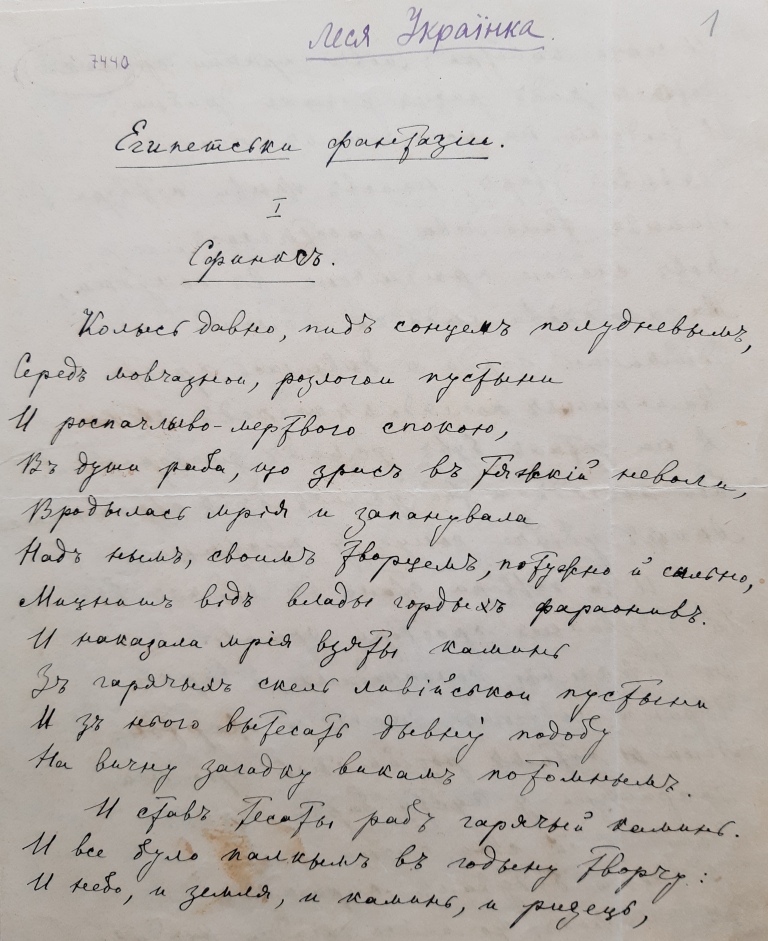 Леся Українка.
1
7440
Египетськи фантазіи.
I
Сфинксъ.
Колысь давно, пидъ сонцемъ полудневымъ,
Середъ мовчазнои, розлогои пустыни
И роспачлыво-мертвого спокою,
Въ души раба, що зрисъ въ тяжкій неволи,
Вродылась мрія и запанувала
Надъ нымъ, своимъ творцемъ, потужно й сильно,
Мицнишъ відъ влады гордыхъ фараонивъ.
И наказала мрія взяты каминь
Зъ гарячыхъ скель ливійськои пустыни
И зъ нього вытесать дывну подобу
На вичну загадку викамъ потомнымъ.
И ставъ тесаты рабъ гарячый каминь.
И все було палкымъ въ годыну творчу:
И небо, и земля, и каминь, и ризець,